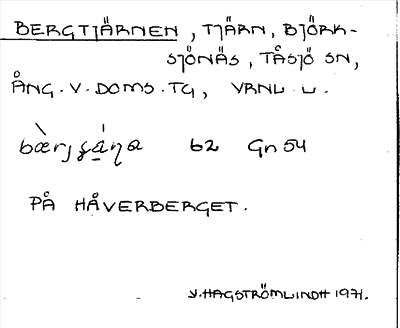 BERGTJÄRNEN, TJÄRN, BJÖRK-
SJÖNÄS, TÅSJÖ SN,
ÅNG. V. DOMS. TG, VRNL L.
62 Gn 54
PÅ HÅVERBERGET.
V. HAGSTRÖMLINDH 1971.